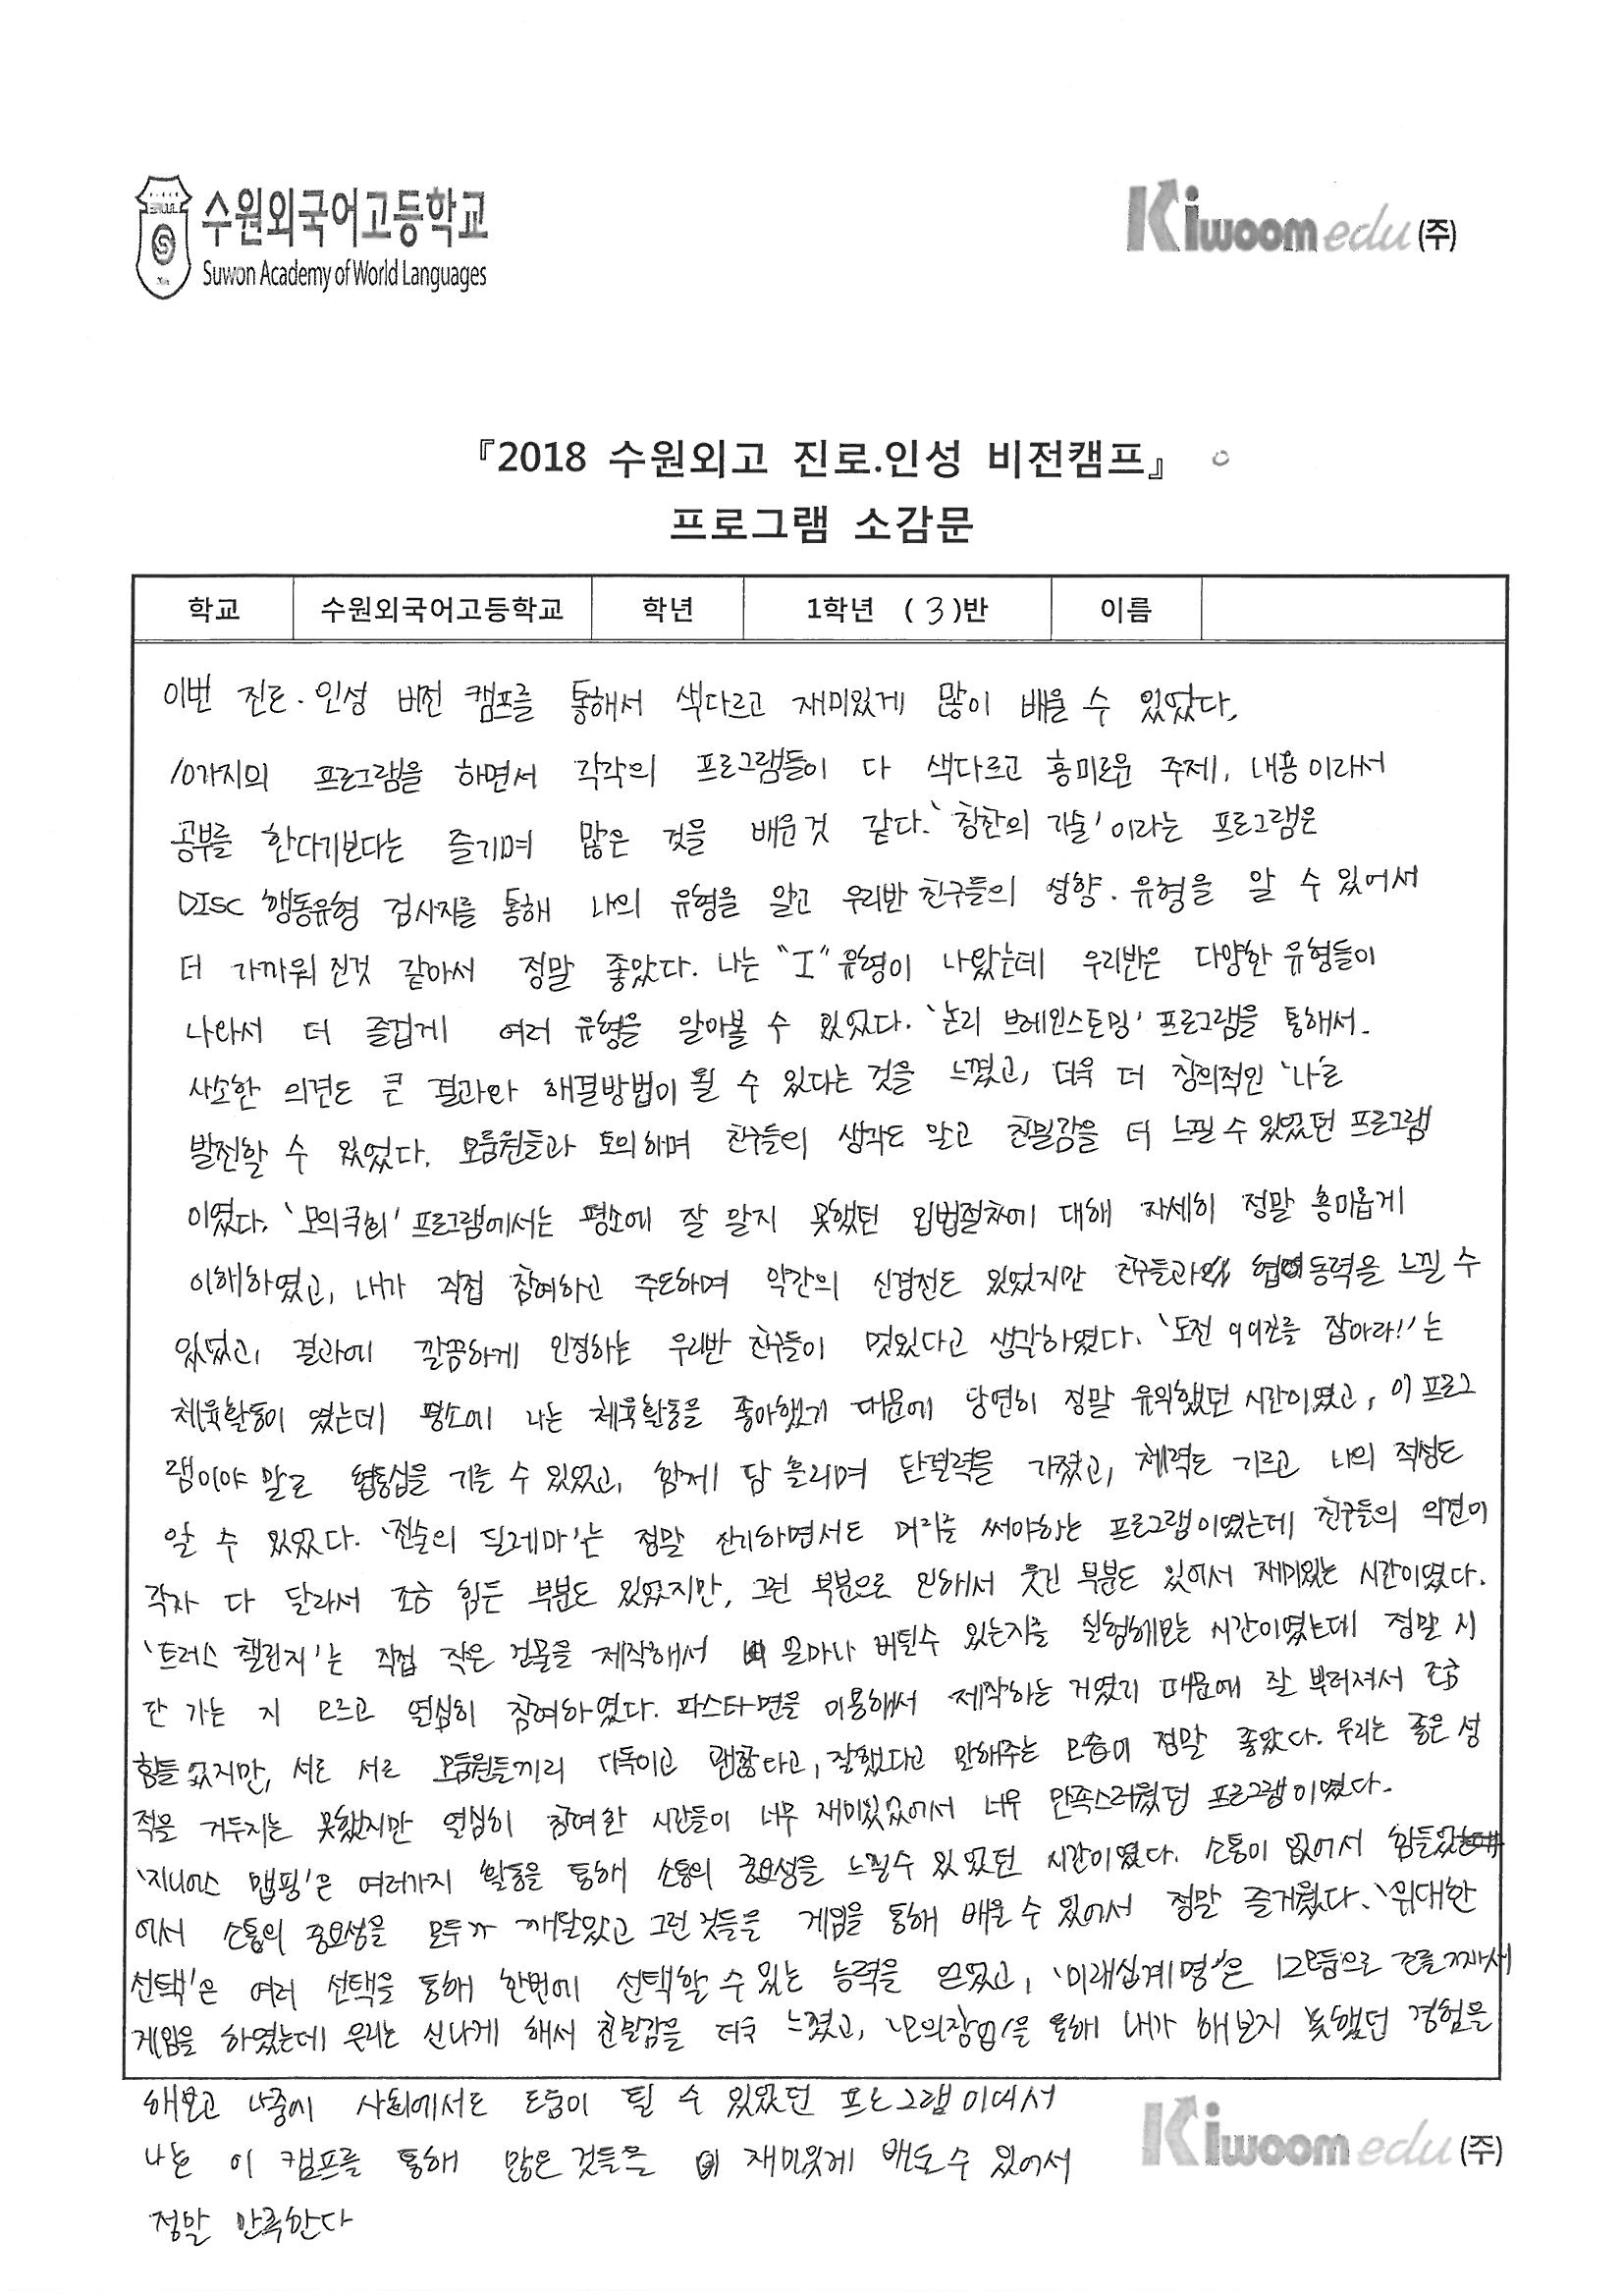 수원외국어고등학교
Suwon Academy of World Languages
Kiwoom edu (주)
『2018 수원외고 진로.인성 비전캠프』
프로그램 소감문
학교 수원외국어고등학교 학년 1학년 ( 3 )반 이름
이번 진로·인성 비전 캠프를 통해서 색다르고 재미있게 많이 배울 수 있었다.
10가지의 프로그램을 하면서 각각의 프로그램들이 다 색다르고 흥미로운 주제, 내용이라서
공부를 한다기보다는 즐기며 많은 것을 배운것 같다. '칭찬의 기술'이라는 프로그램은
DISC 행동유형 검사지를 통해 나의 유형을 알고 우리반 친구들의 성향·유형을 알 수 있어서
더 가까워 진것 같아서 정말 좋았다. 나는 "I"유형이 나왔는데 우리반은 다양한 유형들이
나와서 더 즐겁게 여러 유형을 알아볼 수 있었다. '논리 브레인스토밍' 프로그램을 통해서
사소한 의견도 큰 결과와 해결방법이 될 수 있다는 것을 느꼈고, 더욱 더 창의적인 '나'로
발전할 수 있었다. 모둠원들과 토의하며 친구들의 생각도 알고 친밀감을 더 느낄 수 있었던 프로그램
이였다. '모의국회' 프로그램에서는 평소에 잘 알지 못했던 입법절차에 대해 자세히 정말 흥미롭게
이해하였고, 내가 직접 참여하고 주도하며 약간의 신경전도 있었지만 친구들과 협동력을 느낄 수
있었고, 결과에 깔끔하게 인정하는 우리반 친구들이 멋있다고 생각하였다. '도전 99초를 잡아라!'는
체육활동이 였는데 평소에 나는 체육활동을 좋아했기 때문에 당연히 정말 유익했던 시간이였고, 이 프로그
램이야 말로 협동심을 기를 수 있었고, 함께 땀 흘리며 단결력을 가졌고, 체력도 기르고 나의 적성도
알 수 있었다. '전술의 딜레마'는 정말 신기하면서도 머리를 써야하는 프로그램이였는데 친구들의 의견이
각자 다 달라서 조금 힘든 부분도 있었지만, 그런 부분으로 인해서 웃긴 부분도 있어서 재미있는 시간이였다.
'트러스 챌린지'는 직접 작은 건물을 제작해서 얼마나 버틸수 있는지를 실험해보는 시간이였는데 정말 시
간 가는 지 모르고 열심히 참여하였다. 파스타면을 이용해서 제작하는 거였기 때문에 잘 부러져서 조금
힘들었지만, 서로 서로 모둠원들끼리 다독이고 괜찮다고, 잘했다고 말해주는 모습이 정말 좋았다. 우리는 좋은 성
적을 거두지는 못했지만 열심히 참여한 시간들이 너무 재미있었어서 너무 만족스러웠던 프로그램이였다.
'지니어스 맵핑'은 여러가지 활동을 통해 소통의 중요성을 느낄수 있었던 시간이였다. 소통이 없어서 힘들었
어서 소통의 중요성을 모두가 깨달았고 그런 것들을 게임을 통해 배울 수 있어서 정말 즐거웠다. '위대한
선택'은 여러 선택을 통해 한번에 선택할 수 있는 능력을 얻었고, '미래십계명'은 12모둠으로 조를 짜서
게임을 하였는데 우리는 신나게 해서 친밀감을 더욱 느꼈고, '모의창업'을 통해 내가 해보지 못했던 경험을
해보고 나중에 사회에서도 도움이 될 수 있었던 프로그램이여서
나는 이 캠프를 통해 많은 것들을 재미있게 배울 수 있어서
정말 만족한다
Kiwoom edu (주)